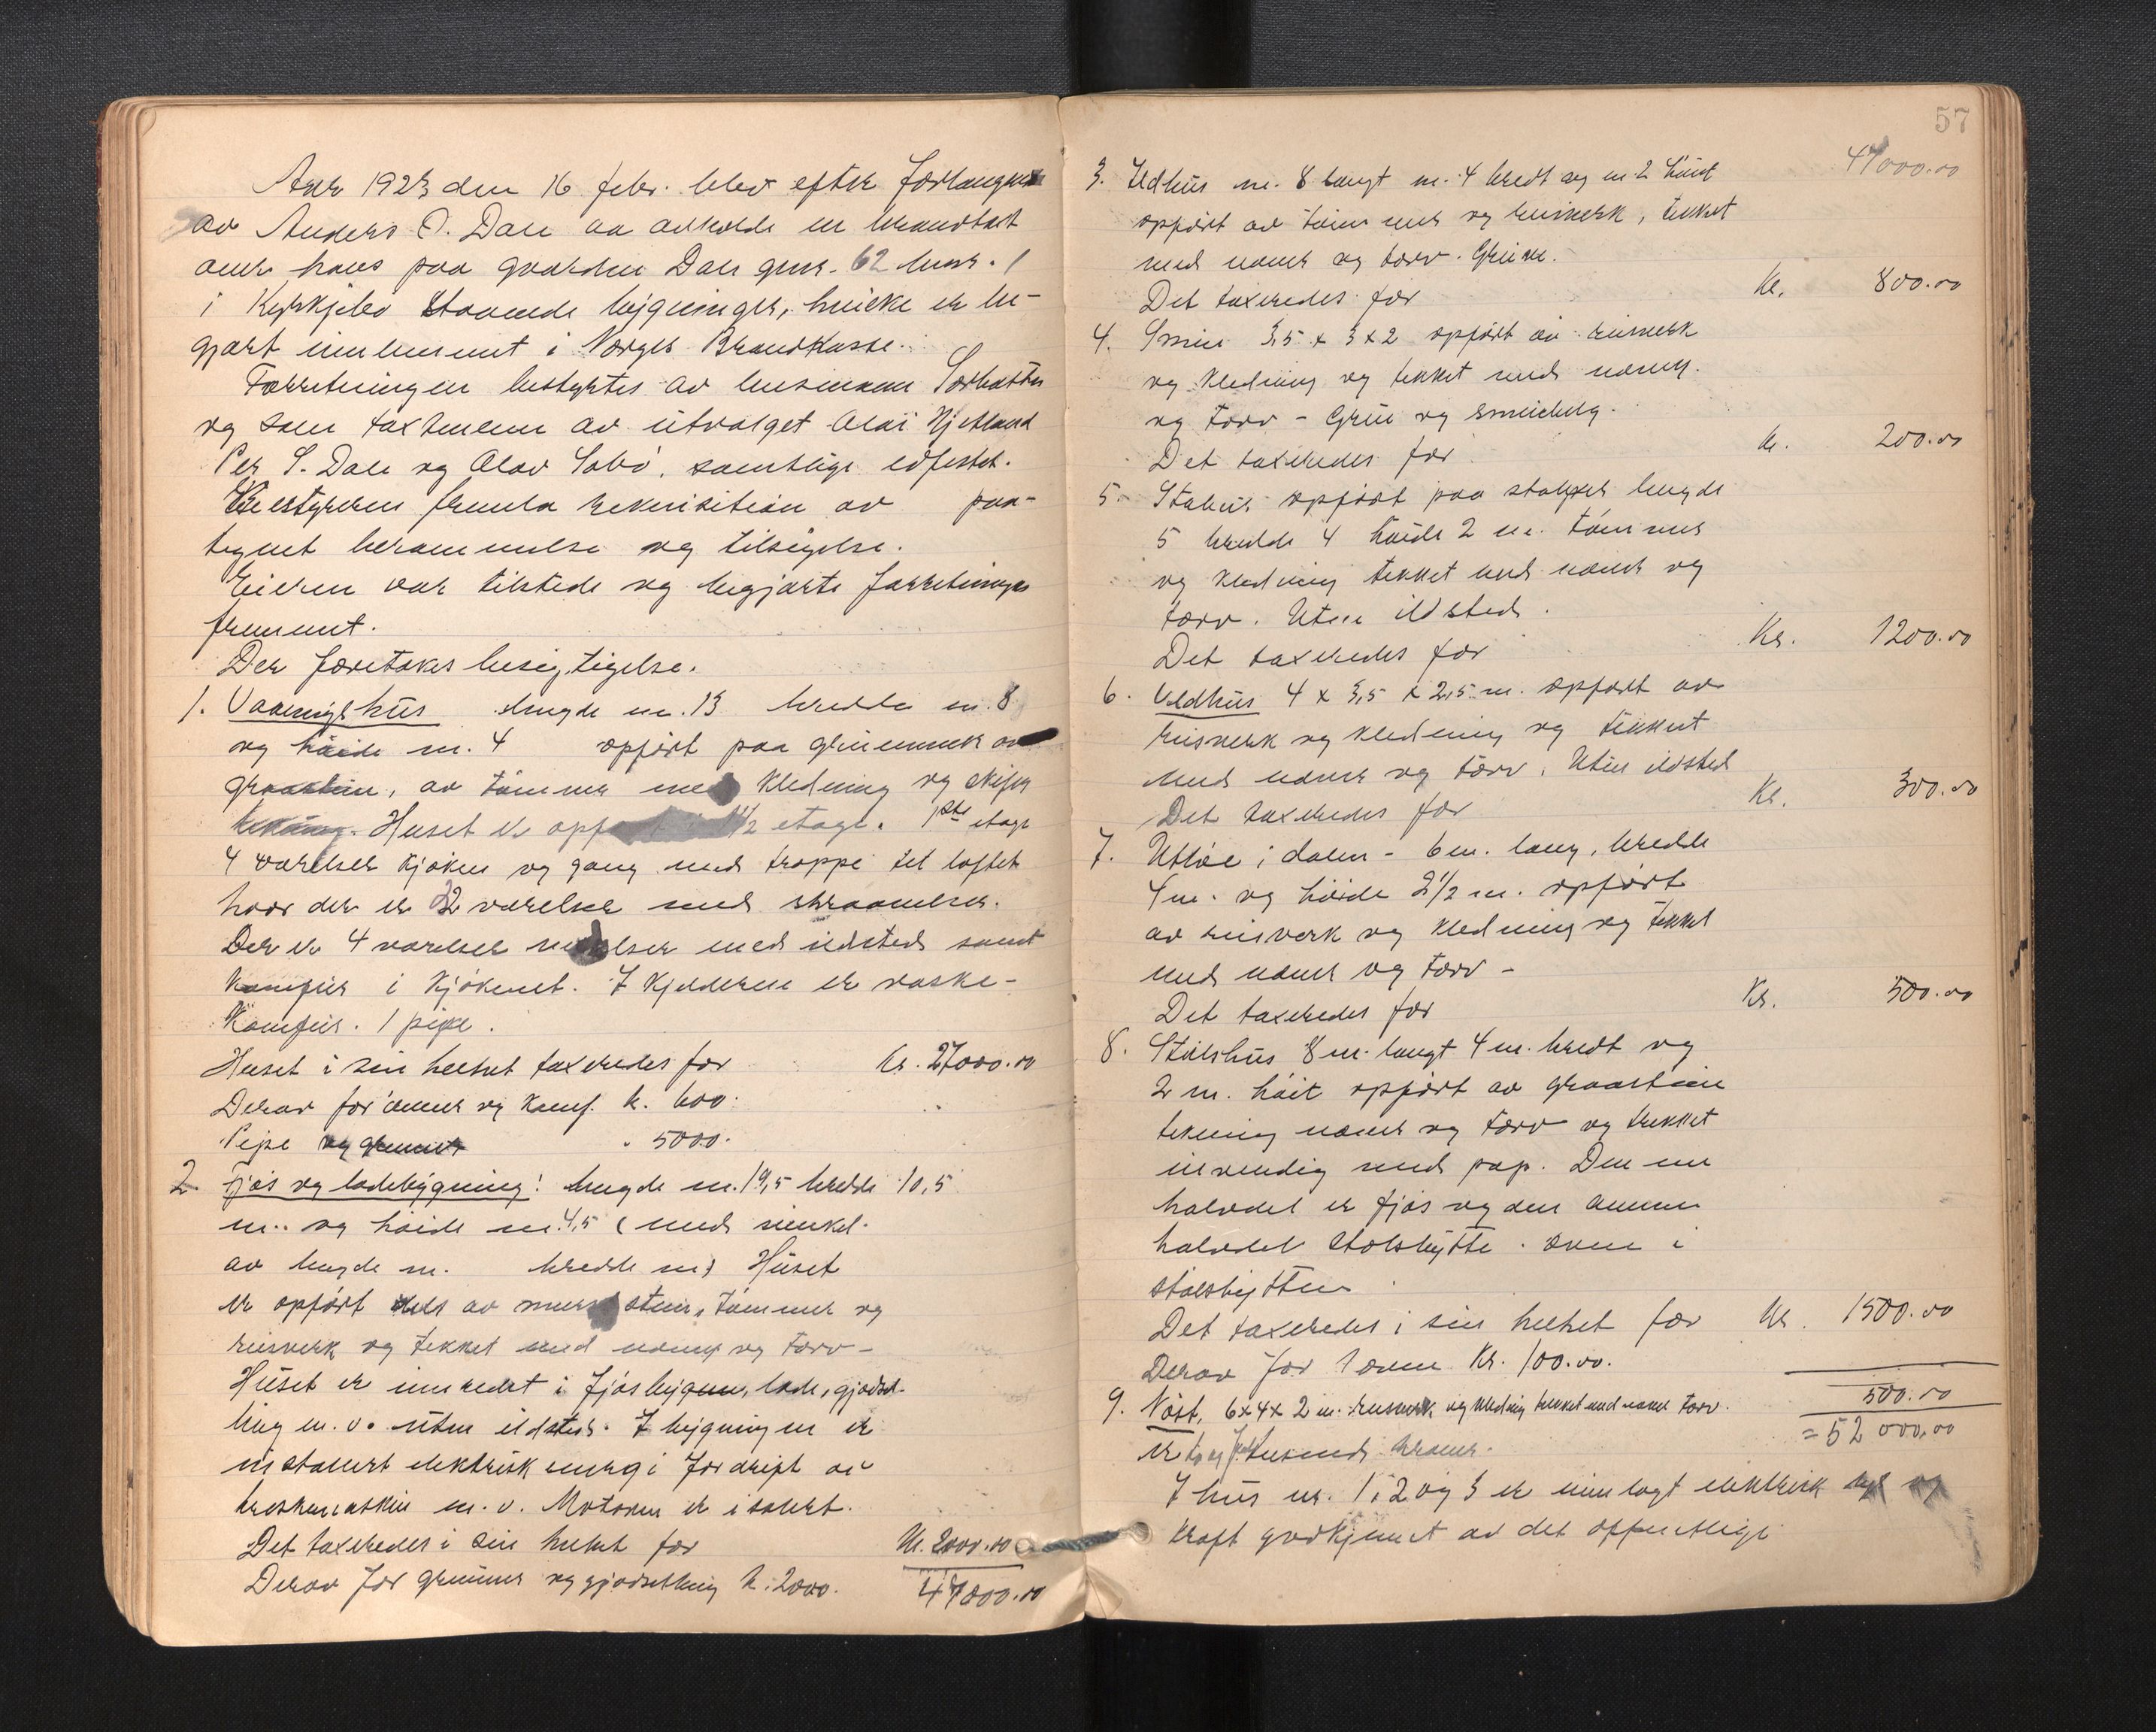 Aar 1923 den 16 febr. blev efter forlangende
av Anders O. Dale aa avholde en brandtakst
over hans paa gaarden Dale gnr. 62 bnr. 1
i Kyrkjebø staaende bygninger, hvilke er be-
gjært innlemmet i Norges Brandkasse.
Forretningen bestyrtes av lensmann
og som taxtmenn av utvalget Hjetland
Per S. Dale og Olav Sobö, samtlige edfestet.
Bestyreren fremla rekvisition av paa-
tegnet berammelse og tilsigelse.
Eieren var tilstede og begjærte forretningen
fremmet.
Der foretokes besigtigelse.
1. Vaaningshus længde m. 13 bredde m. 8
og höide m. 4 opfört paa grunnmur av
graastein, av tömmer med kledning og skifer
tekning. Huset er opfört i 1 1/2 etage. 1ste etage
4 værelser kjöken og gang med trappe til loftet
hvor der er 2 værelser med
Der er 4 værelser med ildsted samt
komfur i kjökenet. I kjelderen er vaske-
komfur. 1 pipe.
Huset i sin helhet taxeredes for Kr. 27000.00
Derav for ovner og komf. k. 600.
Pipe og grunnmur " 5000.
2. Fjös og ladebygning: længde m. 19,5 bredde 10,5
m. og höide m. 4,5 (med vinkel
av længde m. bredde m) Huset
er opfört dels av murstein, tömmer og
reisverk og tekket med næver og torv -
Huset er innredet i fjösbygn, lade, gjødsel-
ling m. v. uten ildsted. I bygningen er
installert elektrisk energi for drift av
treskemaskin m. v. Motoren er isolert.
Det taxeredes i sin helhet for Kr. 2000.00
Derav for grunnmur og gjødselkjeller k. 2000. 47000.00
57
47000.00
3. Eldhus m. 8 langt m. 4 bredt og m. 2 höit
opfört av tömmer og reisverk, tekket
med næver og torv. Gruve.
Det taxeredes for Kr. 800.00
4. Smie 3,5 x 3 x 2 opfört av reisverk
og kledning og tekket med næver
og torv - Grue og smiebelg.
Det taxeredes for kr. 200.00
5. Stabur opfört paa stolper længde
5 bredde 4 höide 2 m. tömmer
og kledning tekket med næver og
torv. Uten ildsted.
Det taxeredes for Kr. 1200.00
6. Vedhus 4 x 3,5 x 2,5 m. opfört av
reisverk og kledning og tekket
med næver og torv. Uten ildsted
Det taxeredes for Kr. 300.00
7. Utlöe i dalen - 6 m. lang, bredde
4 m. og höide 2 1/2 m. opfört
av reisverk og kledning og tekket
med næver og torv -
Det taxeredes for Kr. 500.00
8. Stölshus 8 m. langt 4 m. bredt og
2 m. höit opfört av graastein
tekning næver og torv og trekket
invendig med pap. Den ene
halvdel er fjös og den annen
halvdel stölshytte. Ovn i
stölshytten.
Det taxeredes i sin helhet for Kr. 1500.00
Derav for 1 ovn Kr. 100.00.
9. Nöst, 6x4x2 m. reisverk og kledning tekket med næver torv. 500.00
= 52000.00
er to og femti tusend kroner.
I hus nr. 1, 2 og 3 er innlagt elektrisk lys og
kraft godkjennt av det offentlige